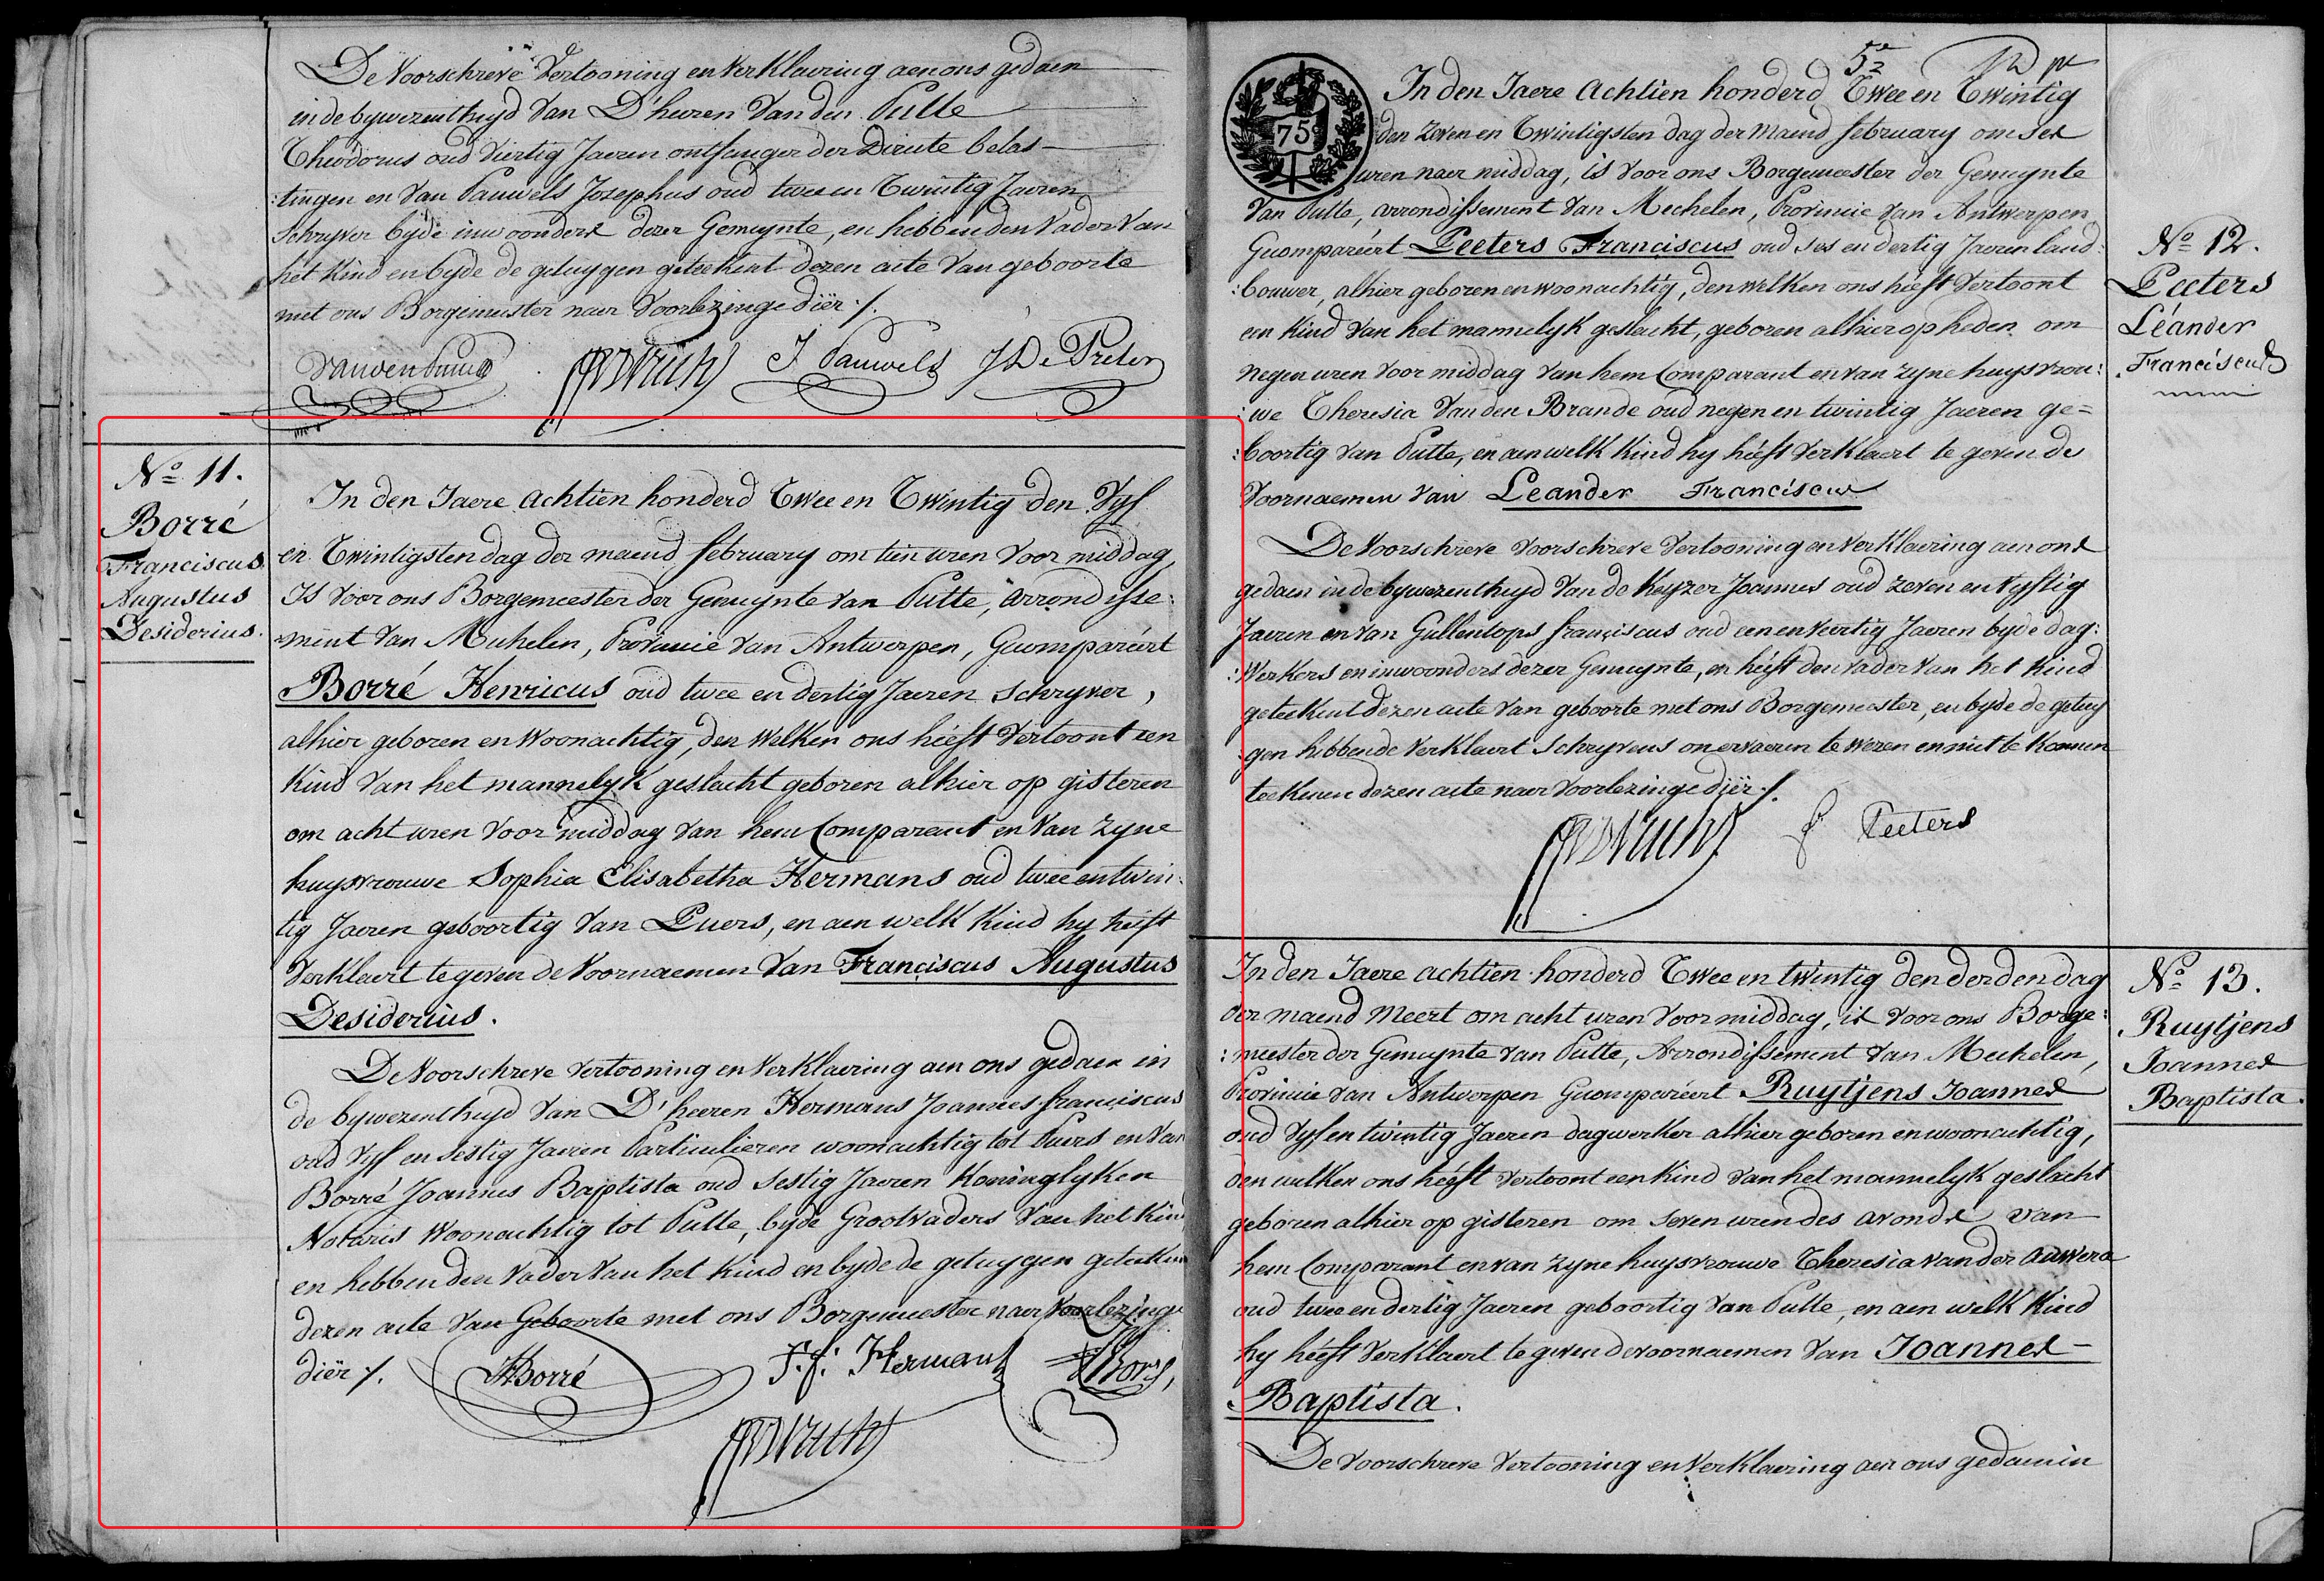 De Voorschreve Vertooning en Verklaering aen ons gedaen
in de bywezentheyd Van D'heeren Van den Putte
Theodorus oud Viertig Jaeren ontfanger der Directe belas-
:tingen en Van Pauwels Josephus oud twee en Twintig Jaeren
Schryver byde inwoonders dezer Gemeynte, en hebben den Vader Van
het Kind en byde de getuygen geteekent dezen acte Van geboorte
met ons Borgemeester naer Voorlezinge diër ./.
J Pauwels J De Preter
No 11.
Borré
Franciscus
Augustus
Desiderius.
In den Jaere Achtien honderd Twee en Twintig den Vyf
en Twintigsten dag der maend february om tien uren Voor middag
Is Voor ons Borgemeester der Gemeynte Van Putte, Arrondisse:
:ment Van Mechelen, Provincie Van Antwerpen, Gecompareért
Borré Henricus oud twee en dertig Jaeren Schryver,
alhier geboren en Woonachtig, den Welken ons héeft Vertoont een
Kind Van het mannelyk geslacht geboren alhier op gisteren
om acht uren Voor middag Van hem Comparant en Van Zyne
huysvrouwe Sophia Elisabetha Hermans oud twee en twin:
tig Jaeren geboortig Van Puers, en aen welk Kind hy heéft
Verklaert te geven de Voornaemen Van Franciscus Augustus
Desiderius.
De Voorschreve Vertooning en Verklaering aen ons gedaen in
de bywezentheyd Van D'heeren Hermans Joannes franciscus
oud Vyf en Sestig Jaeren Particulieren woonachtig tot Puers en Van
Borré Joannes Baptista oud Sestig Jaeren Koninglyken
Notaris Woonachtig tot Putte, byde Grootvaders Van het Kind
en hebben den Vader Van het Kind en byde de getuygen geteekent
dezen acte Van Geboorte met ons Borgemeester naer Voorlezinge
diër ./. HBorré J. f. Hermans
5e
75
In den Jaere Achtien honderd Twee en Twintig
den Zeven en Twintigsten dag der Maend february om ses
uren naer middag, is Voor ons Borgemeester der Gemeynte
Van Putte, arrondissement Van Mechelen, Provincie Van Antwerpen
Gecompareért Peeters Franciscus oud Ses en dertig Jaeren land:
:bouwer, alhier geboren en woonachtig, den welken ons héeft Vertoont
een Kind Van het mannelyk geslacht, geboren alhier op heden om
negen uren Voor middag Van hem Comparant en van Zyne huysvrou:
:we Theresia Van den Brande oud negen en twintig Jaeren ge=
:boortig Van Putte, en aen welk Kind hy héeft Verklaert te geven de
Voornaemen Van Leander Franciscus
De Voorschreve Voorschreve Vertooning en Verklaering aen ons
gedaen in de bywezentheyd Van de Keyzer Joannes oud Zeven en Vyftig
Jaeren en van Gullentops franciscus oud een en Veertig Jaeren byde dag:
:Werkers en inwoonders dezer Gemeynte, en héeft den Vader Van het Kind
geteekent dezen acte Van geboorte met ons Borgemeester, en byde de getuy
gen hebbende Verklaert Schryvens onervaeren te Wezen en niet te Konnen
teekenen dezen acte naer Voorlezinge diër ./.
f Peeters
No 12.
Peeters
Léander
Franciscus
In den Jaere achtien honderd Twee en twintig den derden dag
der maend Meert om acht uren Voormiddag, is Voor ons Borge:
:meester der Gemeynte Van Putte, Arrondissement Van Mechelen,
Provincie Van Antwerpen Gecompareért Ruytjens Joannes
oud Vyf en twintig Jaeren dagwerker alhier geboren en woonachtig,
den welken ons héeft Vertoont een Kind Van het mannelyk geslacht
geboren alhier op gisteren om Seven uren des avonds Van
hem Comparant en van Zyne huysvrouwe Theresia Van der Auwera
oud twee en dertig Jaeren geboortig Van Putte, en aen welk Kind
hy héeft Verklaert te geven de voornaemen Van Joannes -
Baptista.
De Voorschreve Vertooning en Verklaering aen ons gedaen in
No 13.
Ruytjens
Joannes
Baptista.